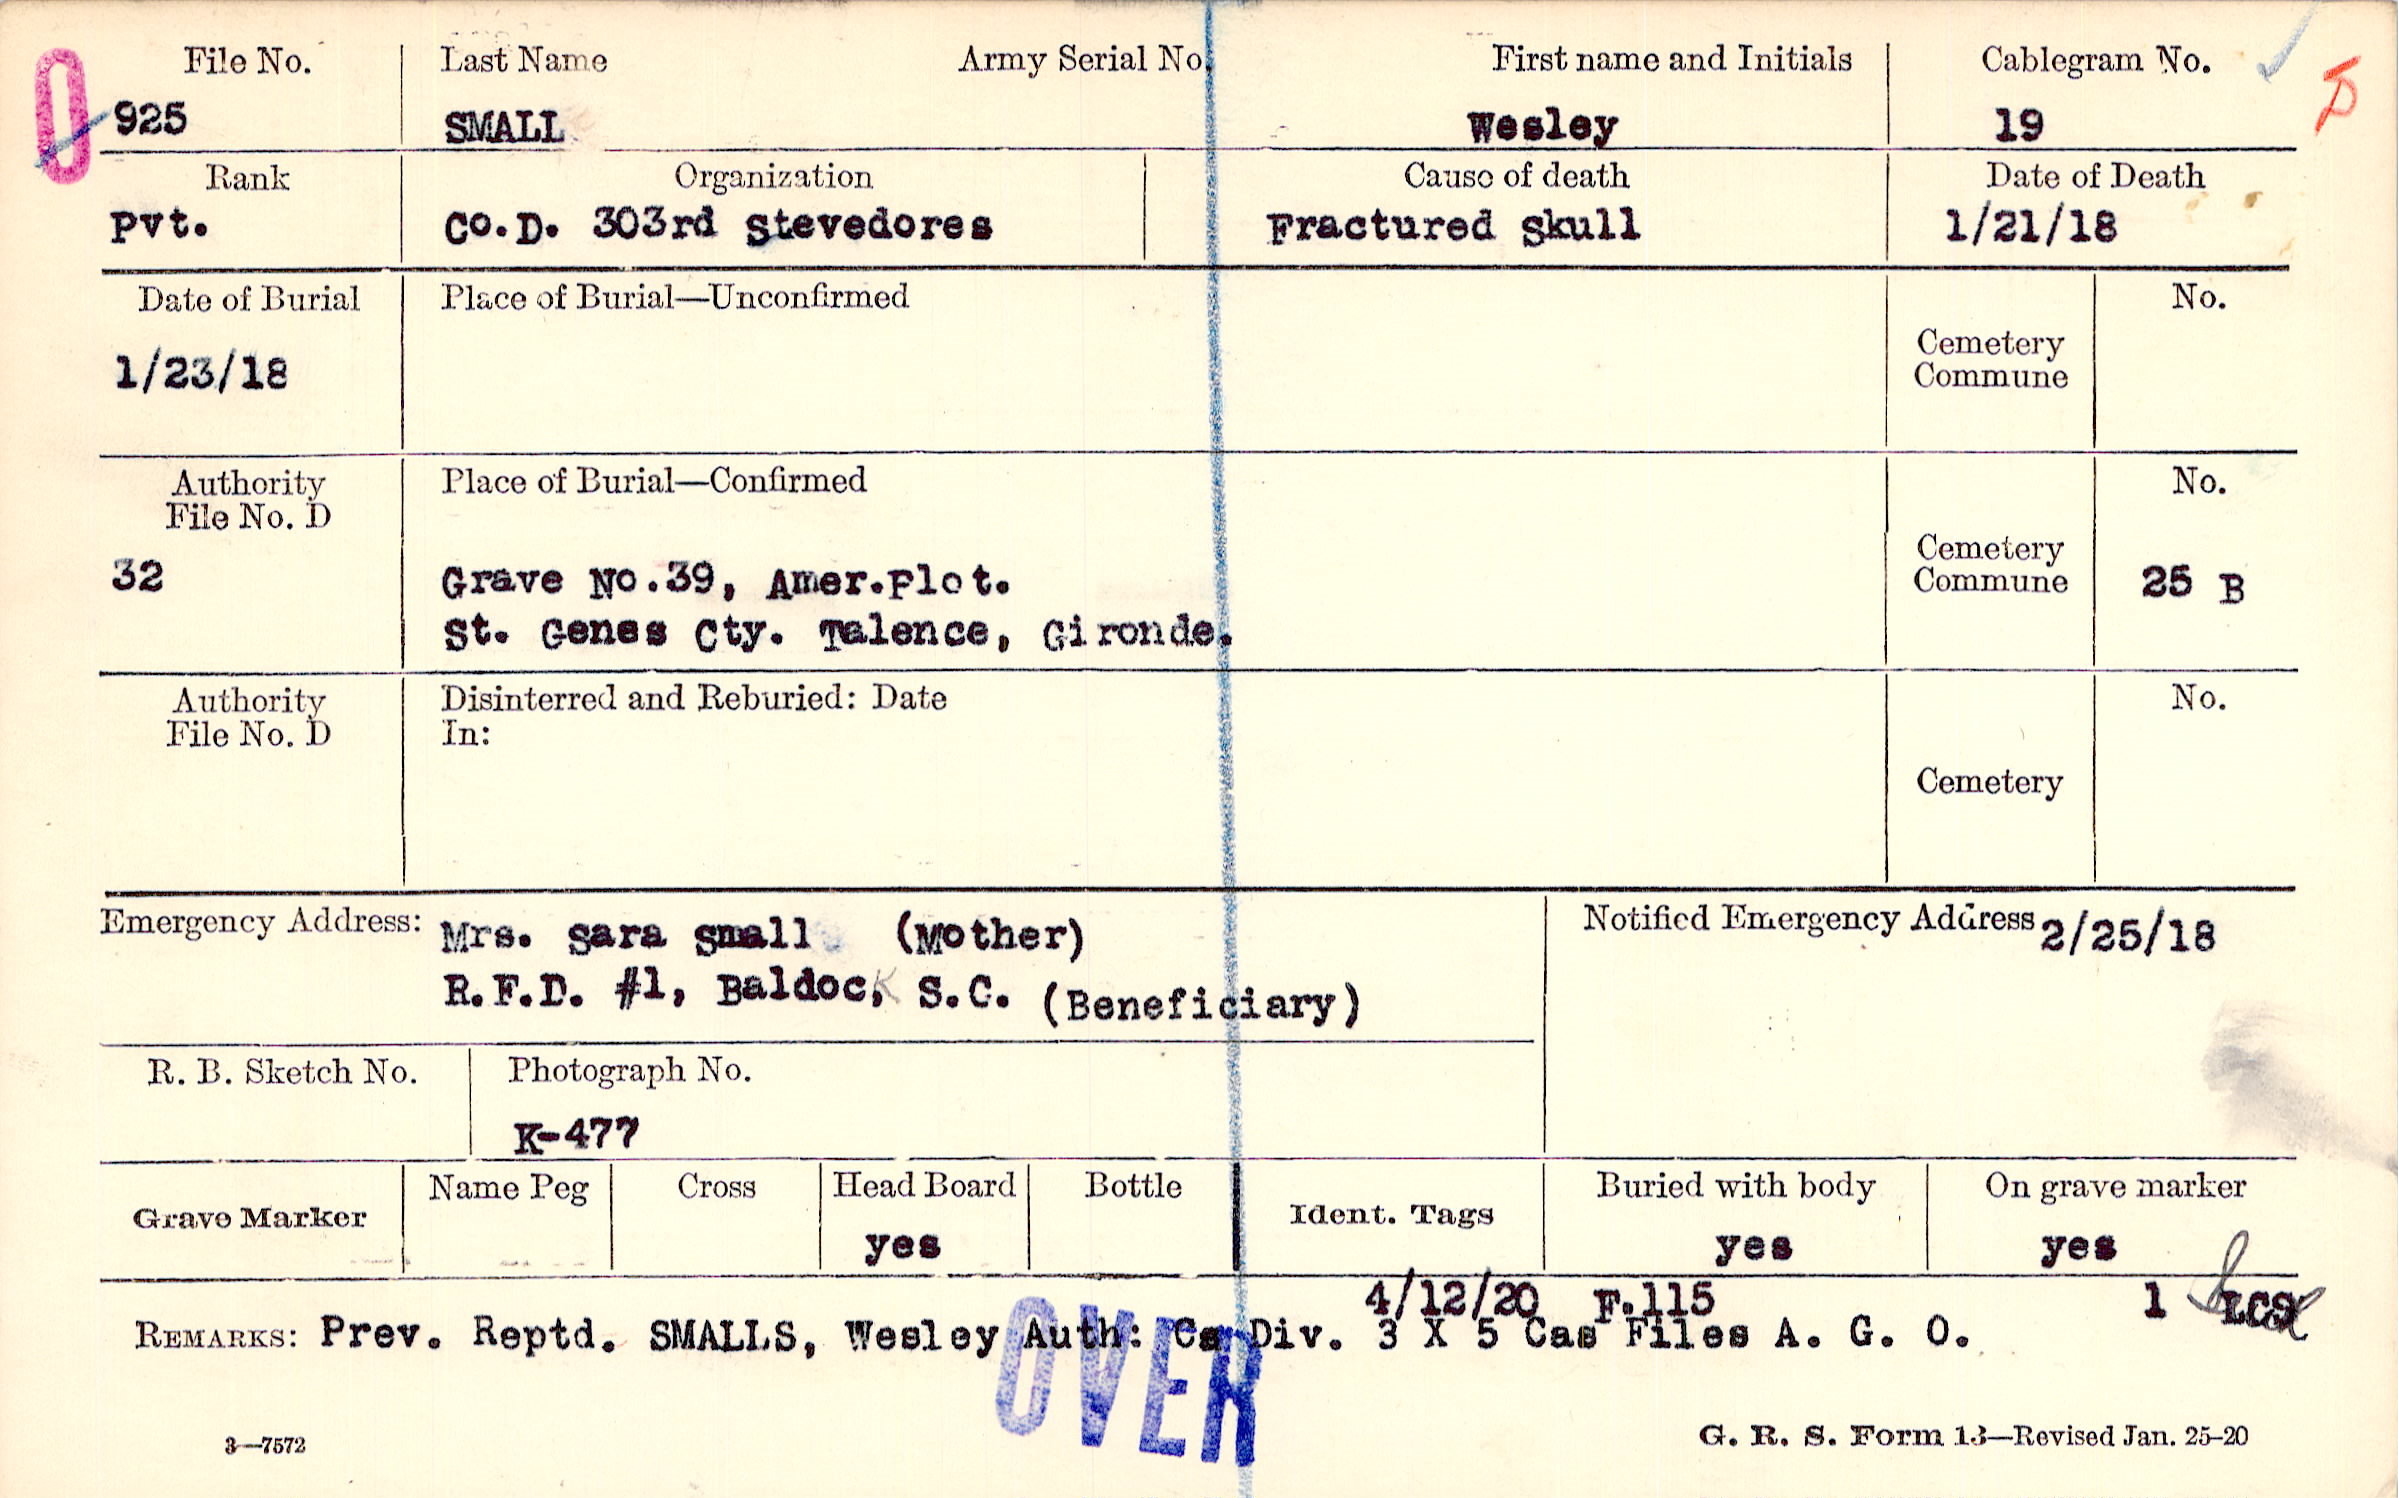 File No. Last Name Army Serial No. First name and Initials Cablegram No.
0 925 SMALL Wesley 19
Rank Organization Cause of death Date of Death
Pvt. Co.D. 303rd Stevedores Fractured Skull 1/21/18
Date of Burial Place of Burial—Unconfirmed No.
1/23/18 Cemetery
Commune
Authority Place of Burial—Confirmed No.
File No. D
32 Grave No.39, Amer.Plot. Cemetery
Commune 25 B
St. Genes Cty. Talence, Gironde.
Authority Disinterred and Reburied: Date No.
File No. D In:
Cemetery
Emergency Address: Mrs. Sara Small (Mother) Notified Emergency Address 2/25/18
R.F.D. #1, Baldock, S.C. (Beneficiary)
R. B. Sketch No. Photograph No.
K-477
Grave Marker Name Peg Cross Head Board Bottle Ident. Tags Buried with body On grave marker
yes yes yes
4/12/20 F.115 1 LCS
REMARKS: Prev. Reptd. SMALLS, Wesley Auth: Cs Div. 3 X 5 Cas Files A. G. O.
OVER
3—7572 G. R. S. Form 13—Revised Jan. 25-20